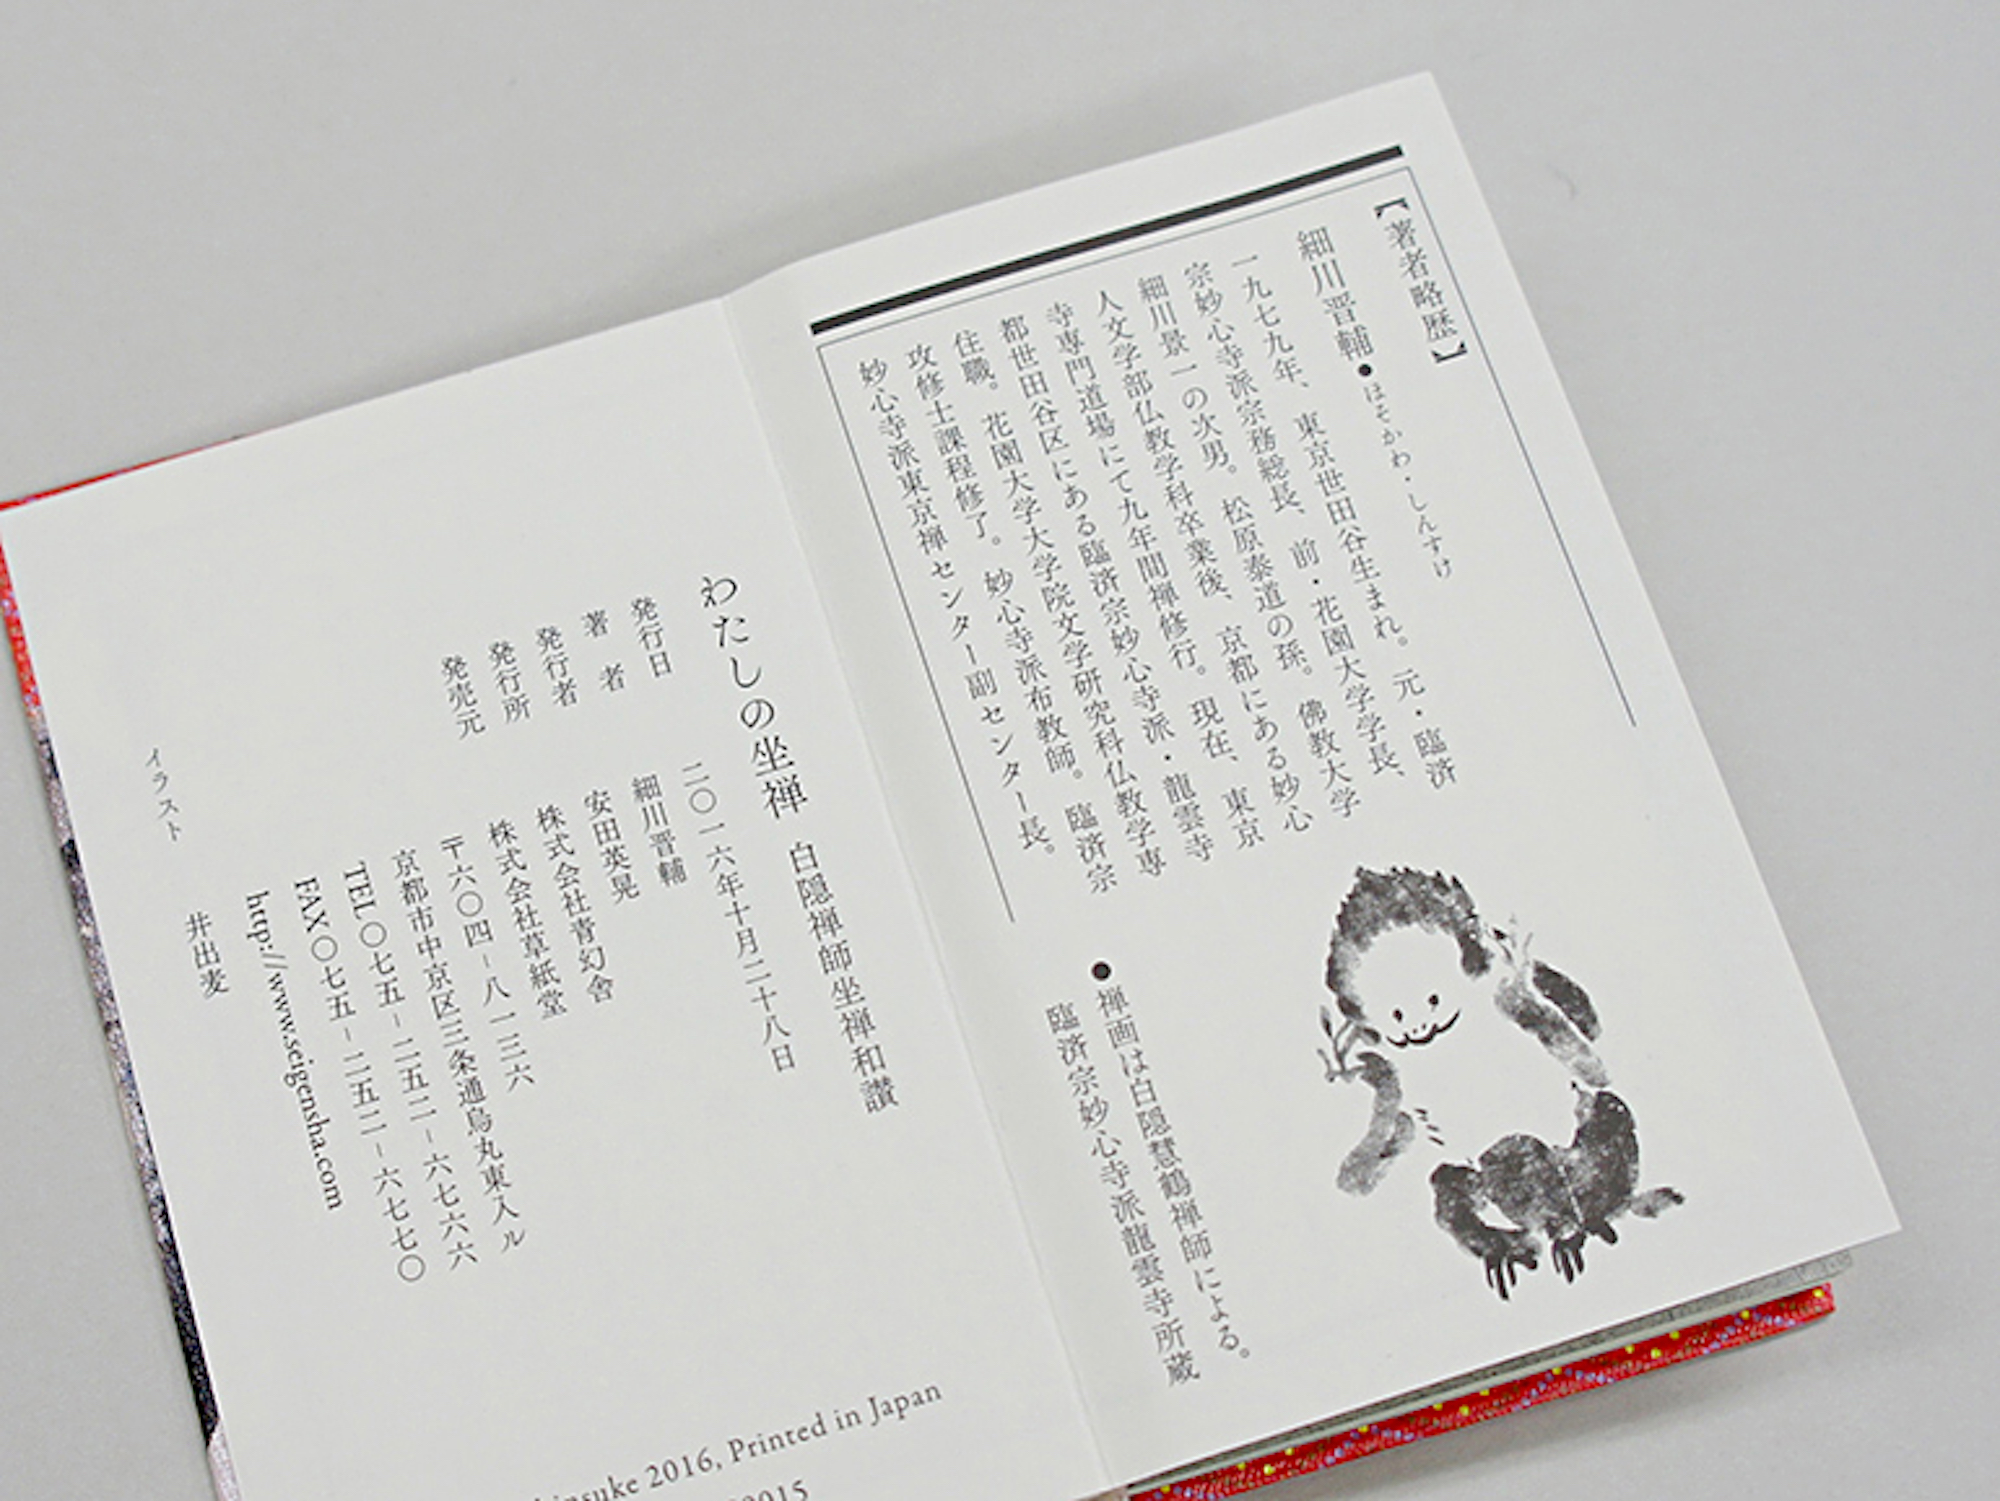 【著者略歴】
細川晋輔●ほそかわ・しんすけ
一九七九年、東京世田谷生まれ。元・臨済
宗妙心寺派宗務総長、前・花園大学学長、
細川景一の次男。松原泰道の孫。佛教大学
人文学部仏教学科卒業後、京都にある妙心
寺専門道場にて九年間禅修行。現在、東京
都世田谷区にある臨済宗妙心寺派・龍雲寺
住職。花園大学大学院文学研究科仏教学専
攻修士課程修了。妙心寺派布教師。臨済宗
妙心寺派東京禅センター副センター長。
●禅画は白隠慧鶴禅師による。
臨済宗妙心寺派龍雲寺所蔵
わたしの坐禅 白隠禅師坐禅和讃
発行日 二〇一六年十月二十八日
著者 細川晋輔
発行者 安田英晃
発行所 株式会社青幻舎
発売元 株式会社草紙堂
〒六〇四-八一三六
京都市中京区三条通烏丸東入ル
TEL〇七五-二五二-六七六六
FAX〇七五-二五二-六七七〇
http://www.seigensha.com
イラスト 井出麦
2016, Printed in Japan